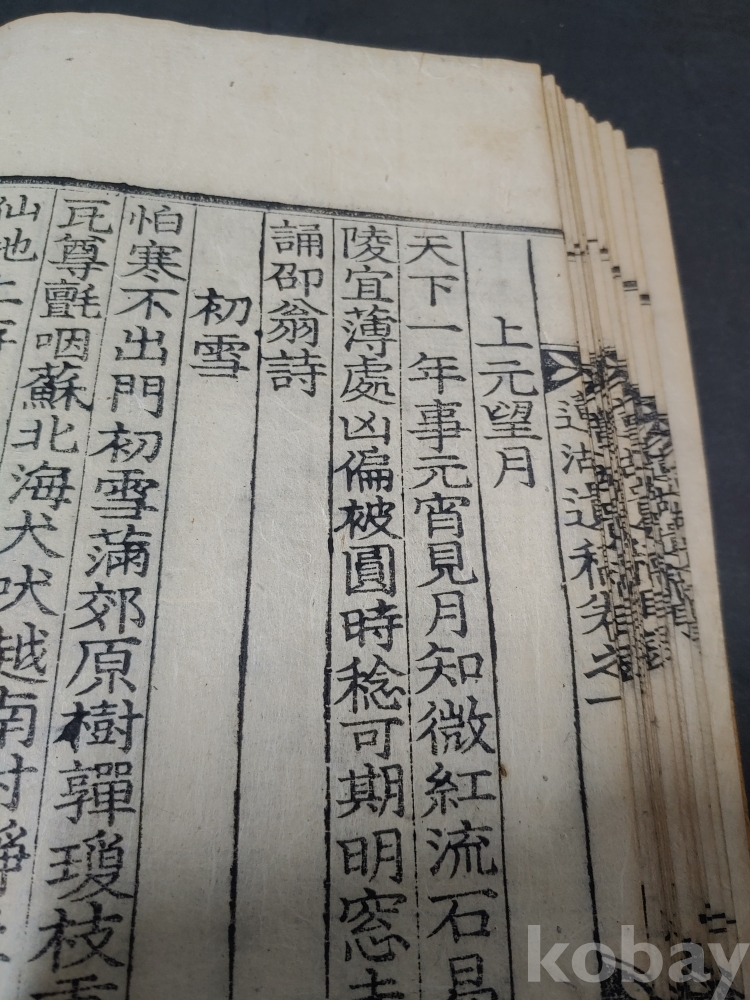 湖遺稿卷之一
上元望月
天下一年事元宵見月知微紅流石易
陵宜薄處凶偏被圓時稔可期明窓
誦邵翁詩
初雪
怕寒不出門初雪滿郊原樹嚲瓊枝
瓦尊氈咽蘇北海犬吠越南村靜
仙地上
kobay